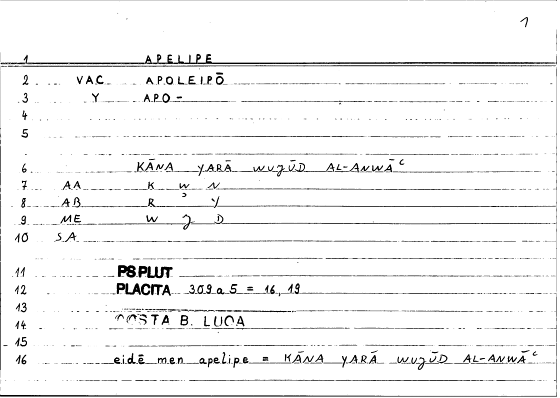 1
1 APELIPE
2 VAC APOLEIPŌ
3 Y APO-
4
5
6 KĀNA YARĀ WUǦŪD AL-ANWĀʿ
7 AA K W N
8 AB R ʾ Y
9 ME W Ǧ D
10 SA
11 PSPLUT
12 PLACITA 309a5 = 16,19
13
14 COSTA B. LUCA
15
16 eidē men apelipe = KĀNA YARĀ WUǦŪD AL-ANWĀʿ